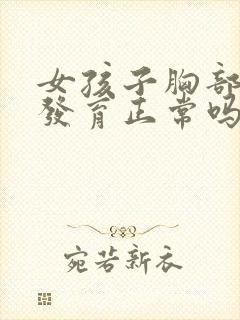 女孩子胸部
發育正常吗
宛若新衣